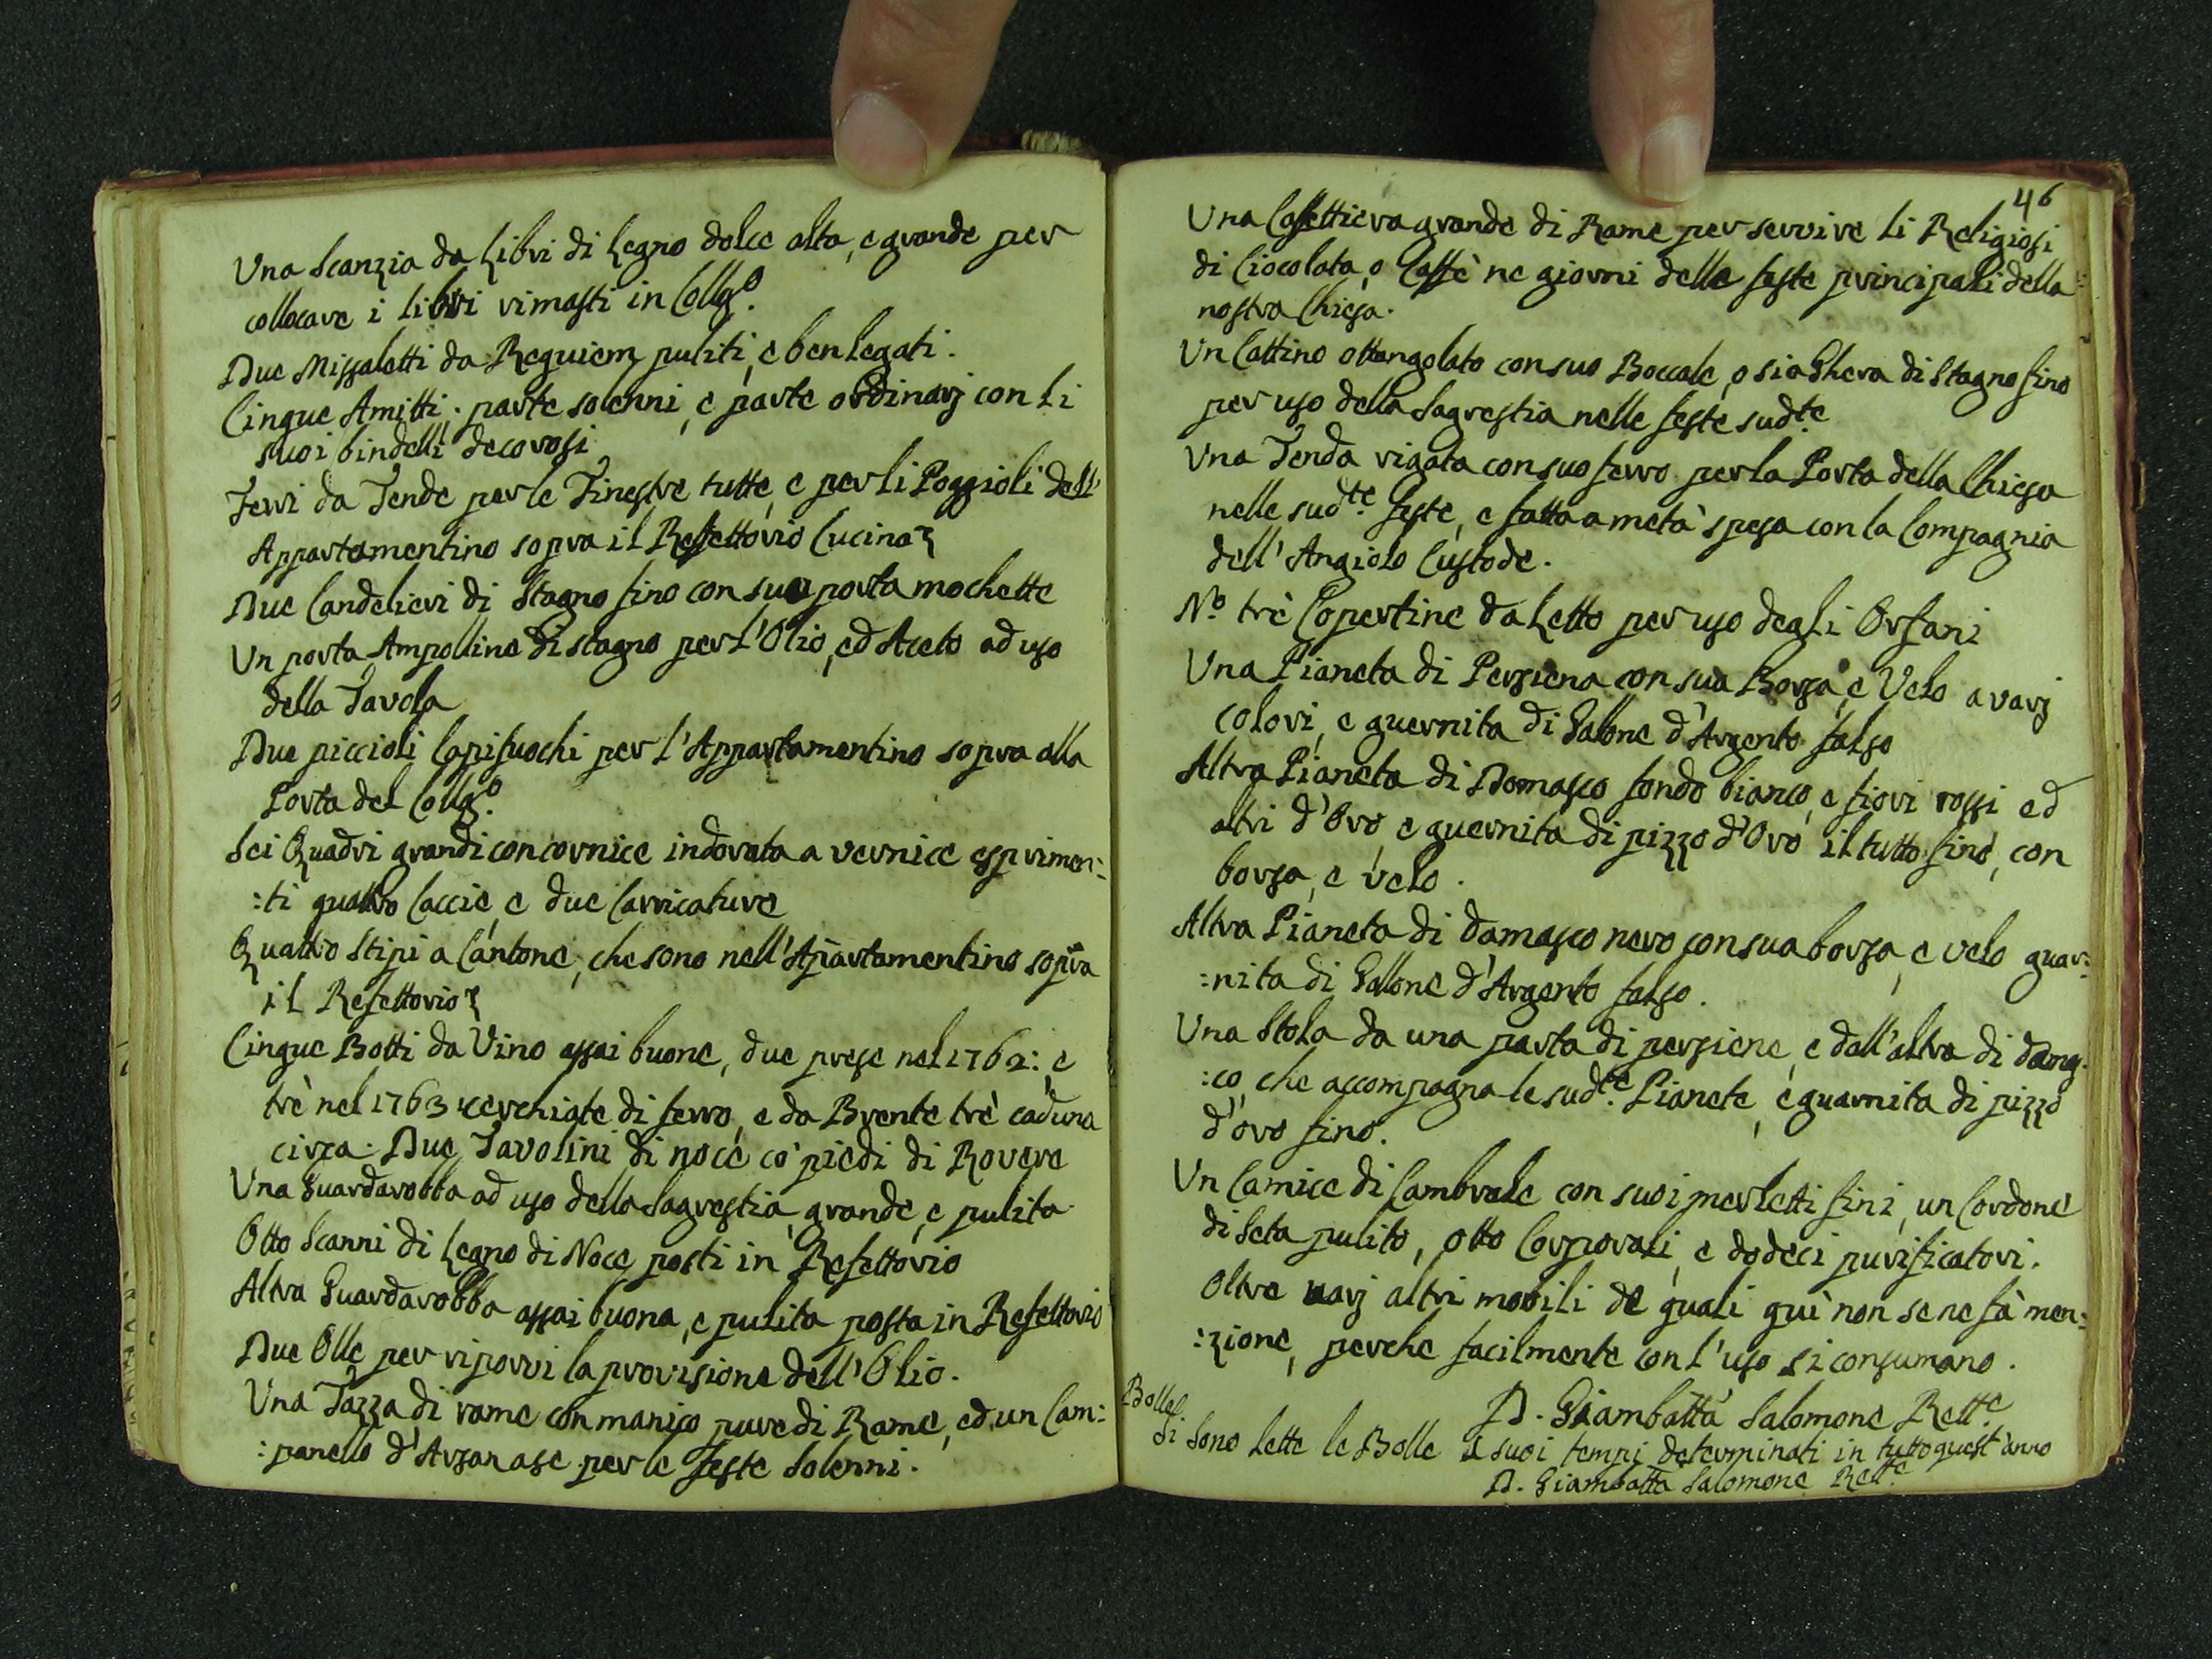 Una Scanzia da Libri di Legno dolce alta, e grande per
collocare i Libri rimasti in Collg.o
Due Missaletti da Requiem puliti, e ben Legati.
Cinque Amitti; parte solenni, e parte ordinarj con Li
suoi bindelli decorosi
Ferri da Tende per le Finestre tutte, e per li Poggioli dell'
Appartamentino sopra il Refettorio Cucina
Due Candelieri di Stagno fino con sua porta mochette
Un porta Ampolline di stagno per L'Olio, ed Aceto ad uso
della Tavola
Due piccioli Capifuochi per L'Appartamentino sopra alla
Porta del Collg.o
Sei Quadri grandi con cornice indorata a vernice esprimen:
:ti quattro Caccie, e due Carricature
Quattro Stipi a Cantone, che sono nell'Apartamentino sopra
il Refettorio
Cinque Botti da Vino assai buone, due prese nel 1762: e
trè nel 1763 cerchiate di ferro, e da Brente trè caduna
circa. Due Tavolini di noce co' piedi di Rovere
Una Guardarobba ad uso della Sagrestia, grande, e pulita
Otto Scanni di Legno di Noce posti in Refettorio
Altra Guardarobba assai buona, e pulita posta in Refettorio
Due Olle per riporvi la provisione dell'Olio.
Una Tazza di rame con manico pure di Rame, ed un Cam:
:panello d'Arzan ase per le feste Solenni.
46
Una Caffettiera grande di Rame per servire Li Religiosi
di Ciocolata, o Caffè ne giorni delle feste principali della
nostra Chiesa.
Un Cattino ottangolato con suo Boccale, o sia Ghera di Stagno fino
per uso della Sagrestia nelle feste sud.te
Una Tenda rigata con suo ferro per la Porta della Chiesa
nelle sud.te feste, e fatta a metà spesa con la Compagnia
dell'Angiolo Custode.
N.o trè Copertine da Letto per uso degli Orfani
Una Pianeta di Persiena con sua Borsa, e Velo a varj
colori, e guernita di Galone d'Argento falso
Altra Pianeta di Domasco fondo bianco, e fiori rossi ed
altri d'Oro, e guernita di pizzo d'Oro il tutto fino, con
borsa, e velo.
Altra Pianeta di damasco nero con sua borsa, e velo guar:
:nita di Gallone d'Argento falso.
Una Stola da una parta di persiene, e dall'altra di damas:
:co, che accompagna le sud.te Pianete, e guarnita di pizzo
d'oro fino.
Un Camice di Cambrale con suoi merletti fini, un Cordone
di Seta pulito, otto Corporali, e dodeci purificatori.
Oltre varj altri mobili de quali qui non se ne fà men:
:zione, perche facilmente con L'uso si consumano.
D. Giambatta Salomone Rett.e
Bolle.
Si sono Lette le Bolle a suoi tempi determinati in tutto quest'anno
D. Giambatta Salomone Rett.e